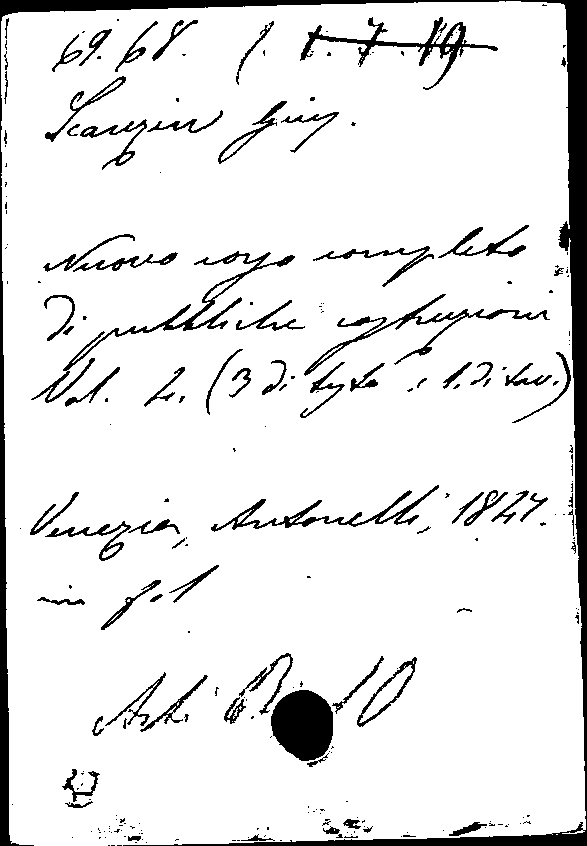 69. 68. 1. 7. 19
Scanzin Giu.
Nuovo corso completo
di pubbliche costruzioni
Vol. 4. (3 di testo e 1. di tav.)
Venezia, Antonelli, 1847.
in fol
Arti